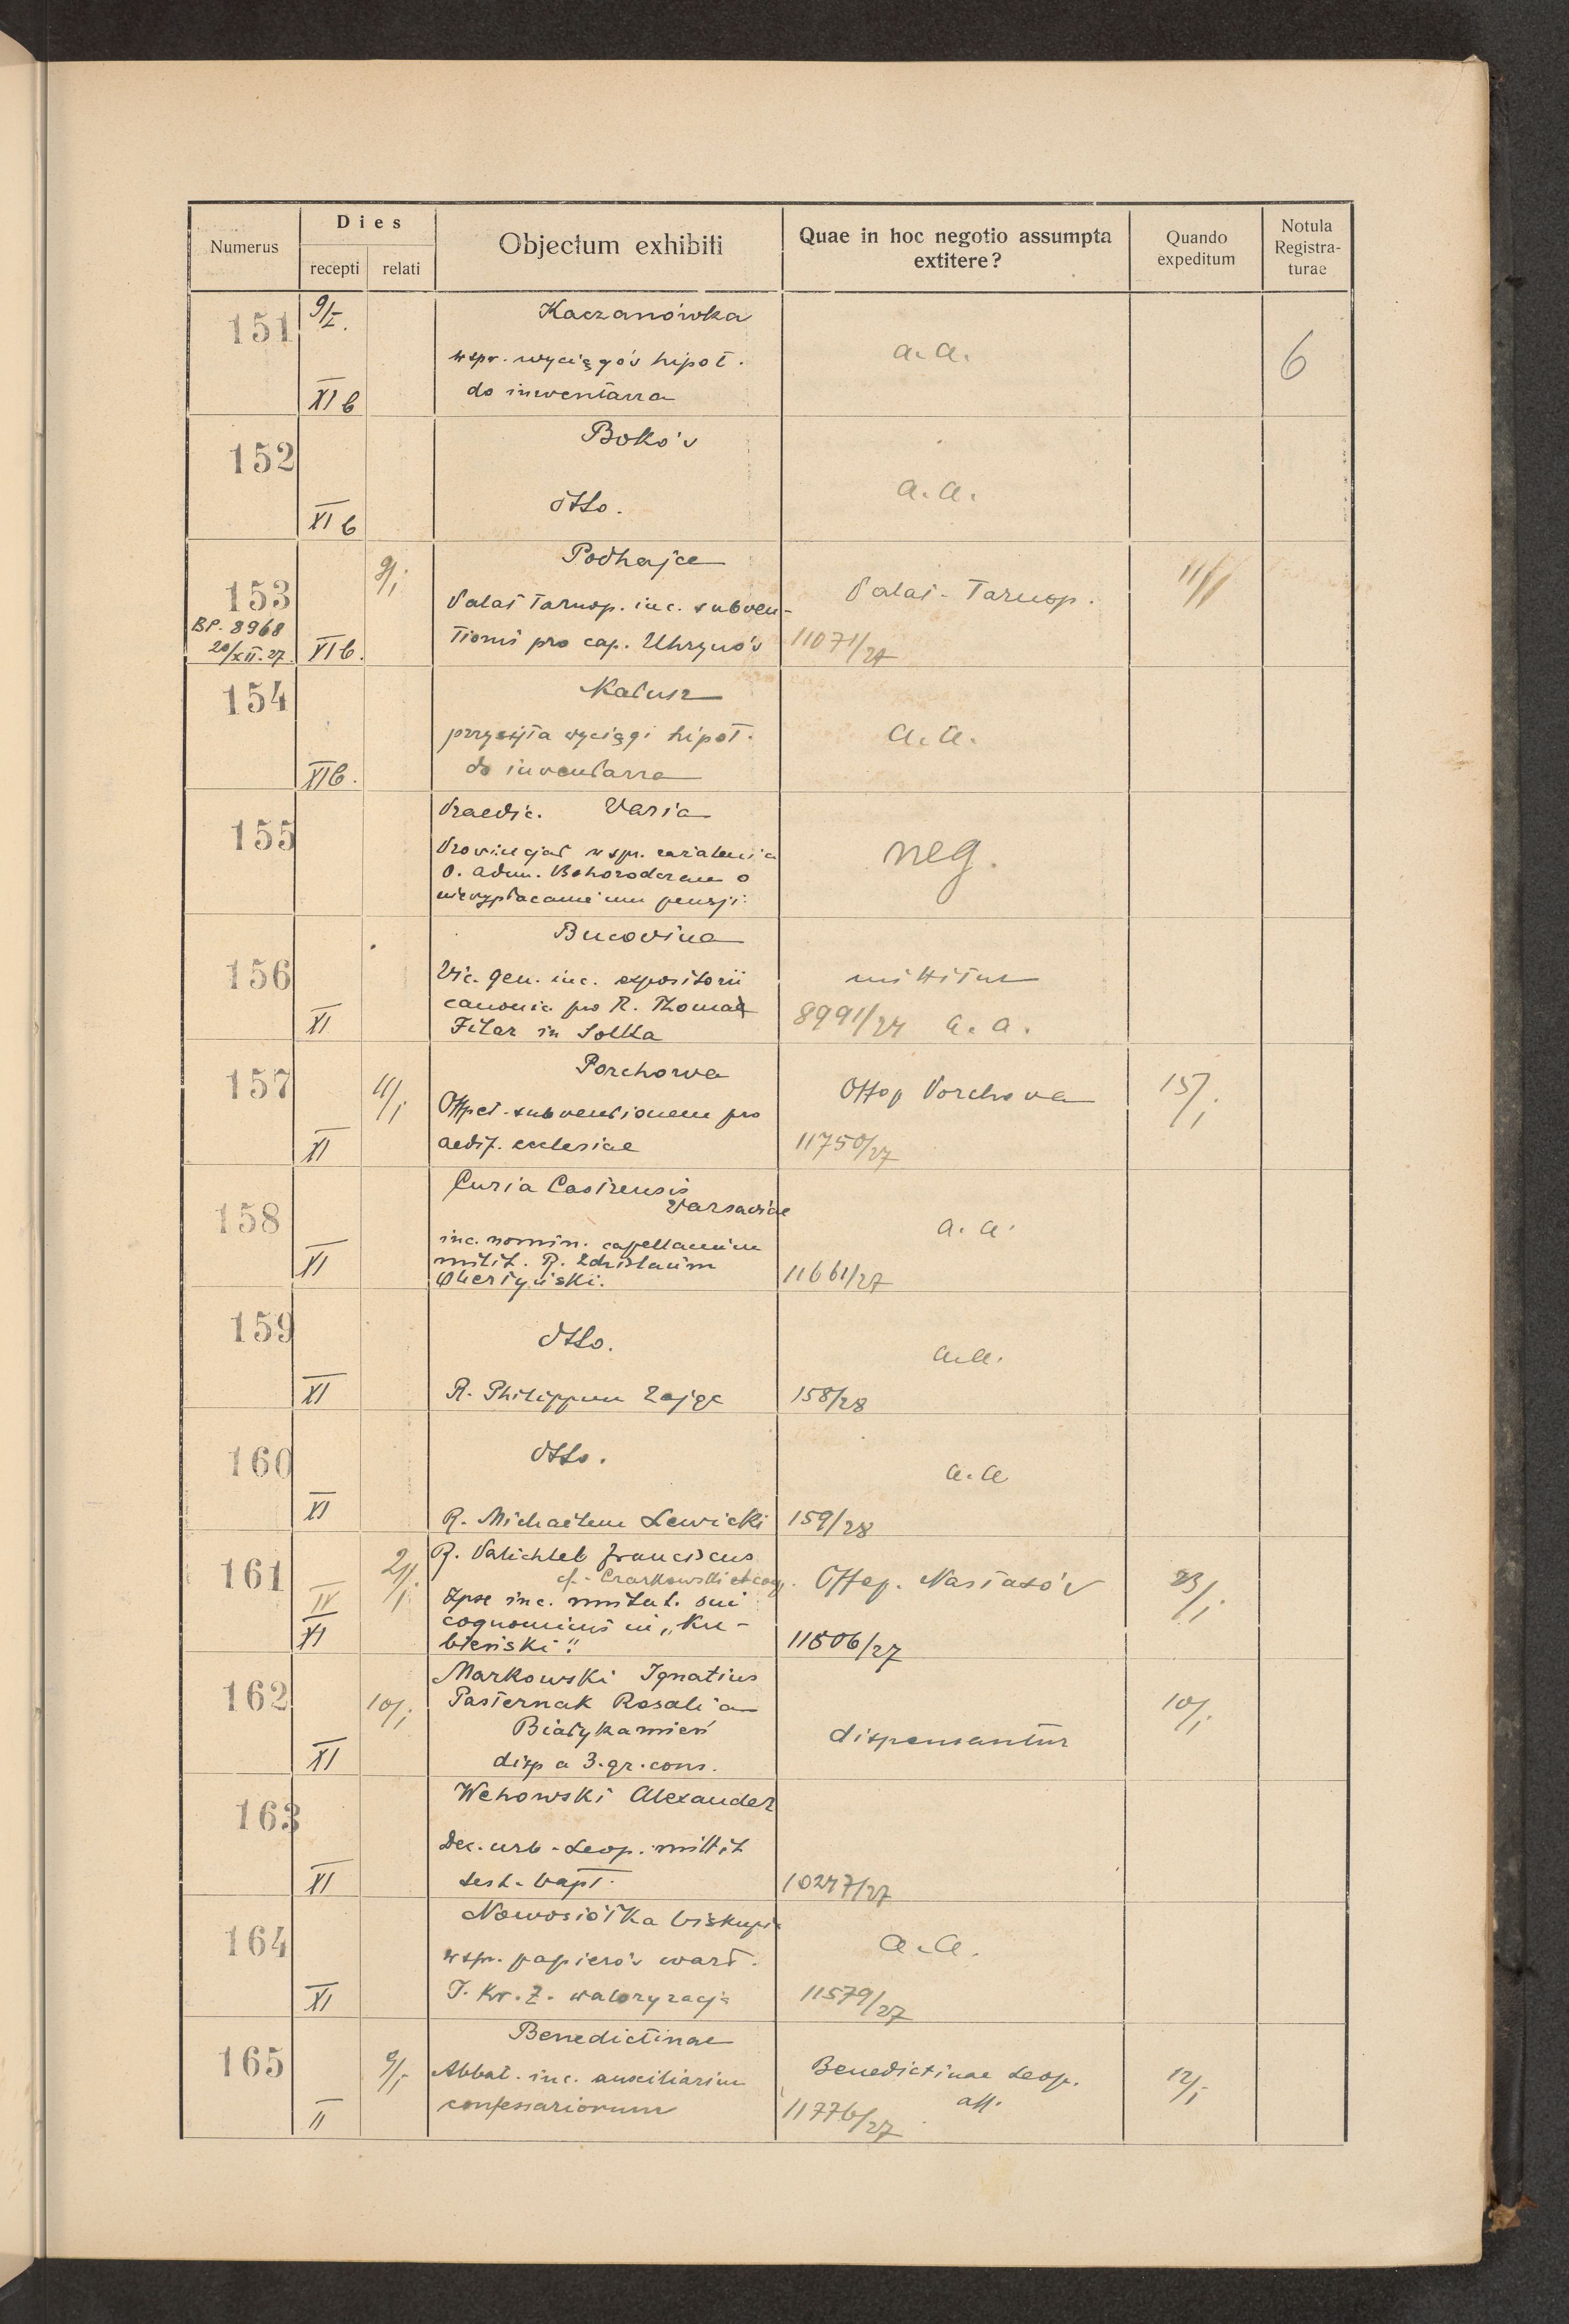 Numerus
Dies
recepti relati
Objectum exhibiti
Quae in hoc negotio assumpta
extitere?
Quando
expeditum
Notula
Registra-
turae
151 9/I. Kaczanówka
wspr. wyciągów hipot. a.a. 6
XI b do inwentarza
152 Boków
XI b dtto. a.a.
153 9/I Podhajce
Palat Tarnop. inc. subven- Palat-Tarnop. 11/I
BP. 8968
20/XII.27. XI b. tionis pro cap. Uhrynów 11071/27
154 Kałusz
przysyła wyciągi hipot. a.a.
XI b. do inwentarza
155 Praedic. Varia
Prowincjał w spr. zażalenia neg.
O. adm. Bohorodczan o
niewypłacanie mu pensji
156 Bucovina
Vic. gen. inc. expositorii mittitur
canonic. pro R. Thomae 8991/27 a.a.
XI Filar in Solka
157 11/I Porchowa
Offert. subventionem pro Offop Porchova 15/I
XI aedif. ecclesiae 11750/27
158 Curia Castrensis
Varsaviae
inc. nomin. capellanum a.a.
XI milit. R. Zdzislaum
Obertyński. 11661/27
159 dtto. a.a.
XI R. Philippum Zając 158/28
160 dtto. a.a
XI R. Michaelem Lewicki 159/28
161 21/I R. Palichleb Franciscus
cf. Czarkowski et cog.
IV Ipse inc. mutat. sui Offop. Nastasów 23/I
XI cognominis in „Ku-
bieński". 11506/27
162 Markowski Ignatius
10/I Pasternak Rosalia 10/I
Białykamień dispensantur
XI disp a 3. gr. cons.
163 Wehowski Alexander
Dec. urb. Leop. mittit
XI test. bapt. 10247/27
164 Nowosiółka biskupia
w spr. papierów wart. a.a.
XI T. Kr. Z. waloryzacja 11579/27
165 Benedictinae
9/I Abbat. inc. auxiliarium Benedictinae Leop. 12/I
aff.
II confessariorum 11776/27